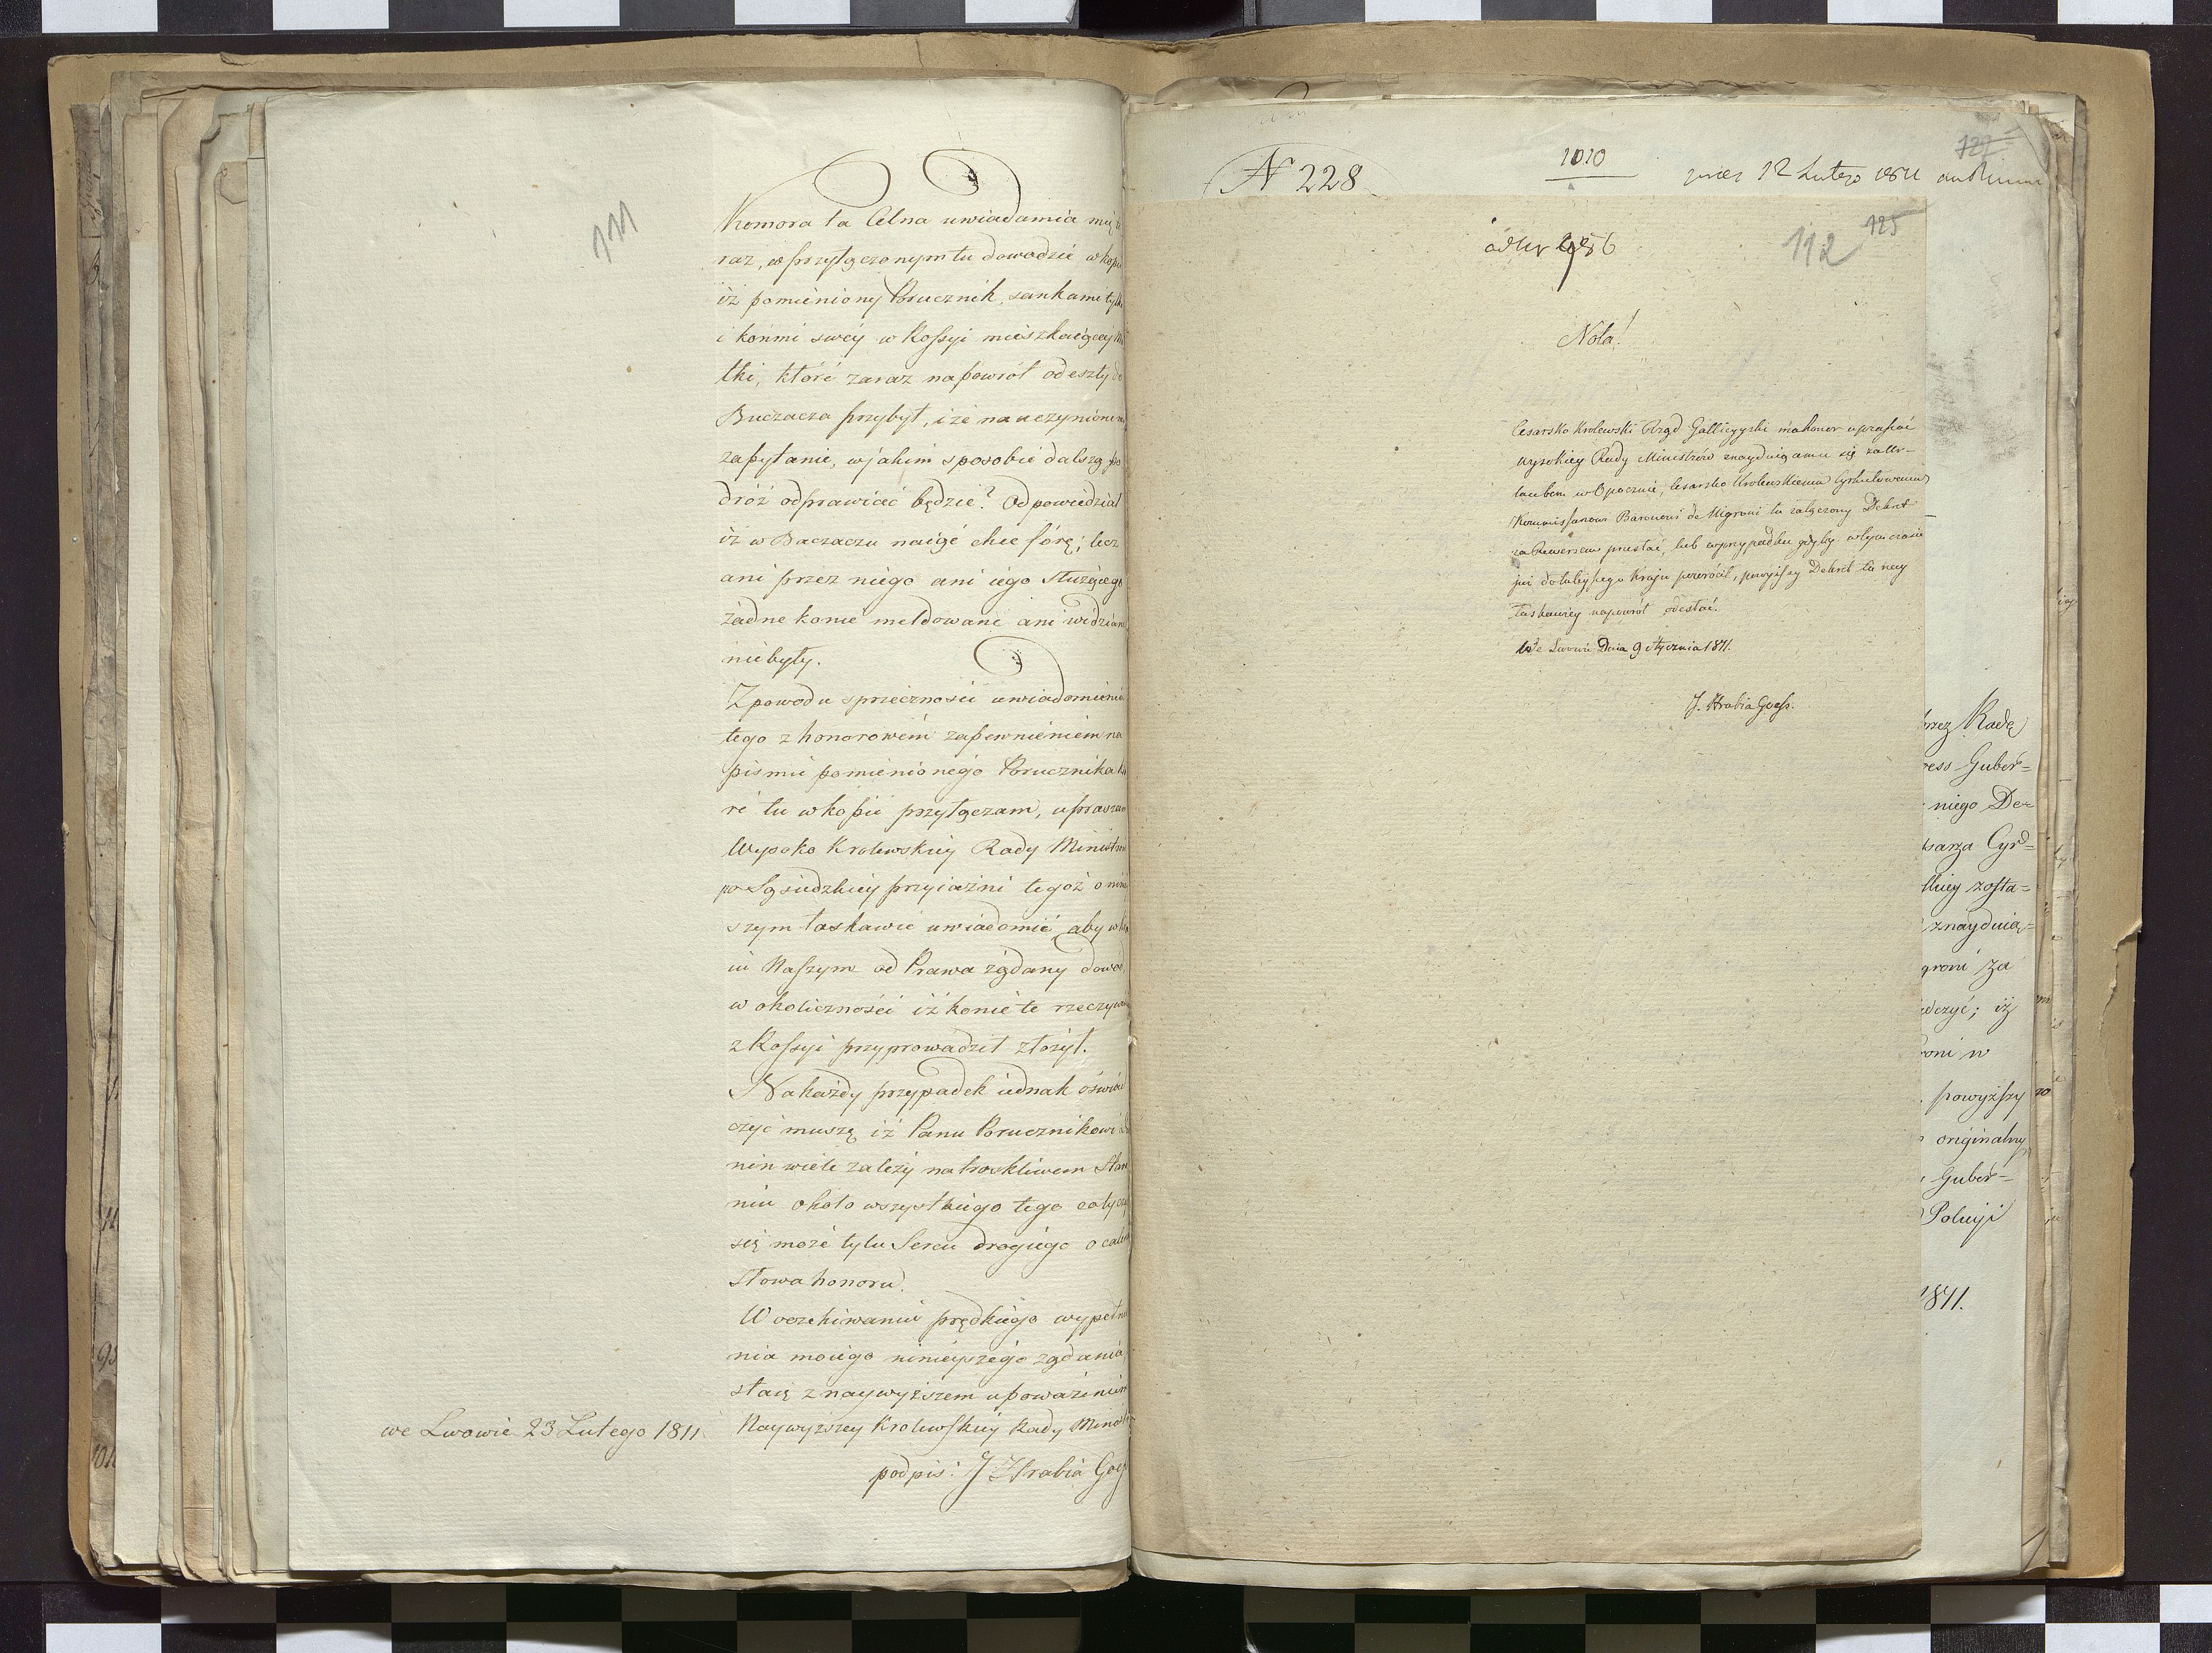 111
Komora ta Celna uwiadamia mię te
raz, w przyłączonym tu dowodzie w kopii
iż pomieniony Porucznik, sankami tylko
i końmi swéy w Rossyi mieszkaiącey Ma
tki, które zaraz napowrót odeszły do
Buczacza przybył, i że na uczynione mu
zapytanie, w jakim sposobie dalszą po
dróż odprawiać będzie? Odpowiedział
iż w Buczaczu naiąć chce fórę; lecz
ani przez niego ani iego służącego
żadne konie meldowane ani widziane
niebyły.
Z powodu sprzeczności uwiadomienia
tego z honorowém zapewnieniem na
piśmie pomienionego Porucznika któ
re tu w kopii przyłączam, upraszam
Wysoko Krolewskiey Rady Ministrów
po Sąsiedzkiey przyiaźni tegoż o niniey
szym łaskawie uwiadomić, aby w
Naszym od Prawa żądany dowód
w okoliczności iż konie te rzeczywiście
z Rossyi przyprowadził złożył.
Na każdy przypadek iednak oświad
czyć muszę iż Panu Porucznikowi
wiele zależy na troskliwem Stara
niu około wszystkiego tego co tycz
się może tylu Sercu drogiego ocalenia
słowa honoru.
W oczekiwaniu prędkiego wypełnie
nia moiego ninieyszego żądania,
staię z naywyższem upoważnieniem
Naywyższey Krolewskiey Rady Minist
we Lwowie 23 Lutego 1811
podpis: J Hrabia Goess
N 228
1010
12 Lutego 1811
127
125
112
ad Nr
Nota!
Cesarsko Krolewski Rząd Gallicyyski ma honor upraszać
wysokiey Rady Ministrów znayduiącemu się za Ur-
laubem w Opocznie, Cesarsko Krolewskiemu Cyrkułowemu
Kommissarzowi Baronowi de Migroni tu załączony Dekret
za Rewersem przesłać, lub w przypadku gdyby w tym czasie
już do tuteyszego Kraju powrócił, powyższy Dekret tu nay
łaskawiey napowrót odesłać.
We Lwowie Dnia 9 Stycznia 1811.
J. Hrabia Goess.
przez Radę
ress Guber=
niego De=
sarza Cyr=
lkiey zosta=
znayduią=
groni za
dczyć; iż
roni w
powyższy
originalny
Guber=
Policyi
1811.